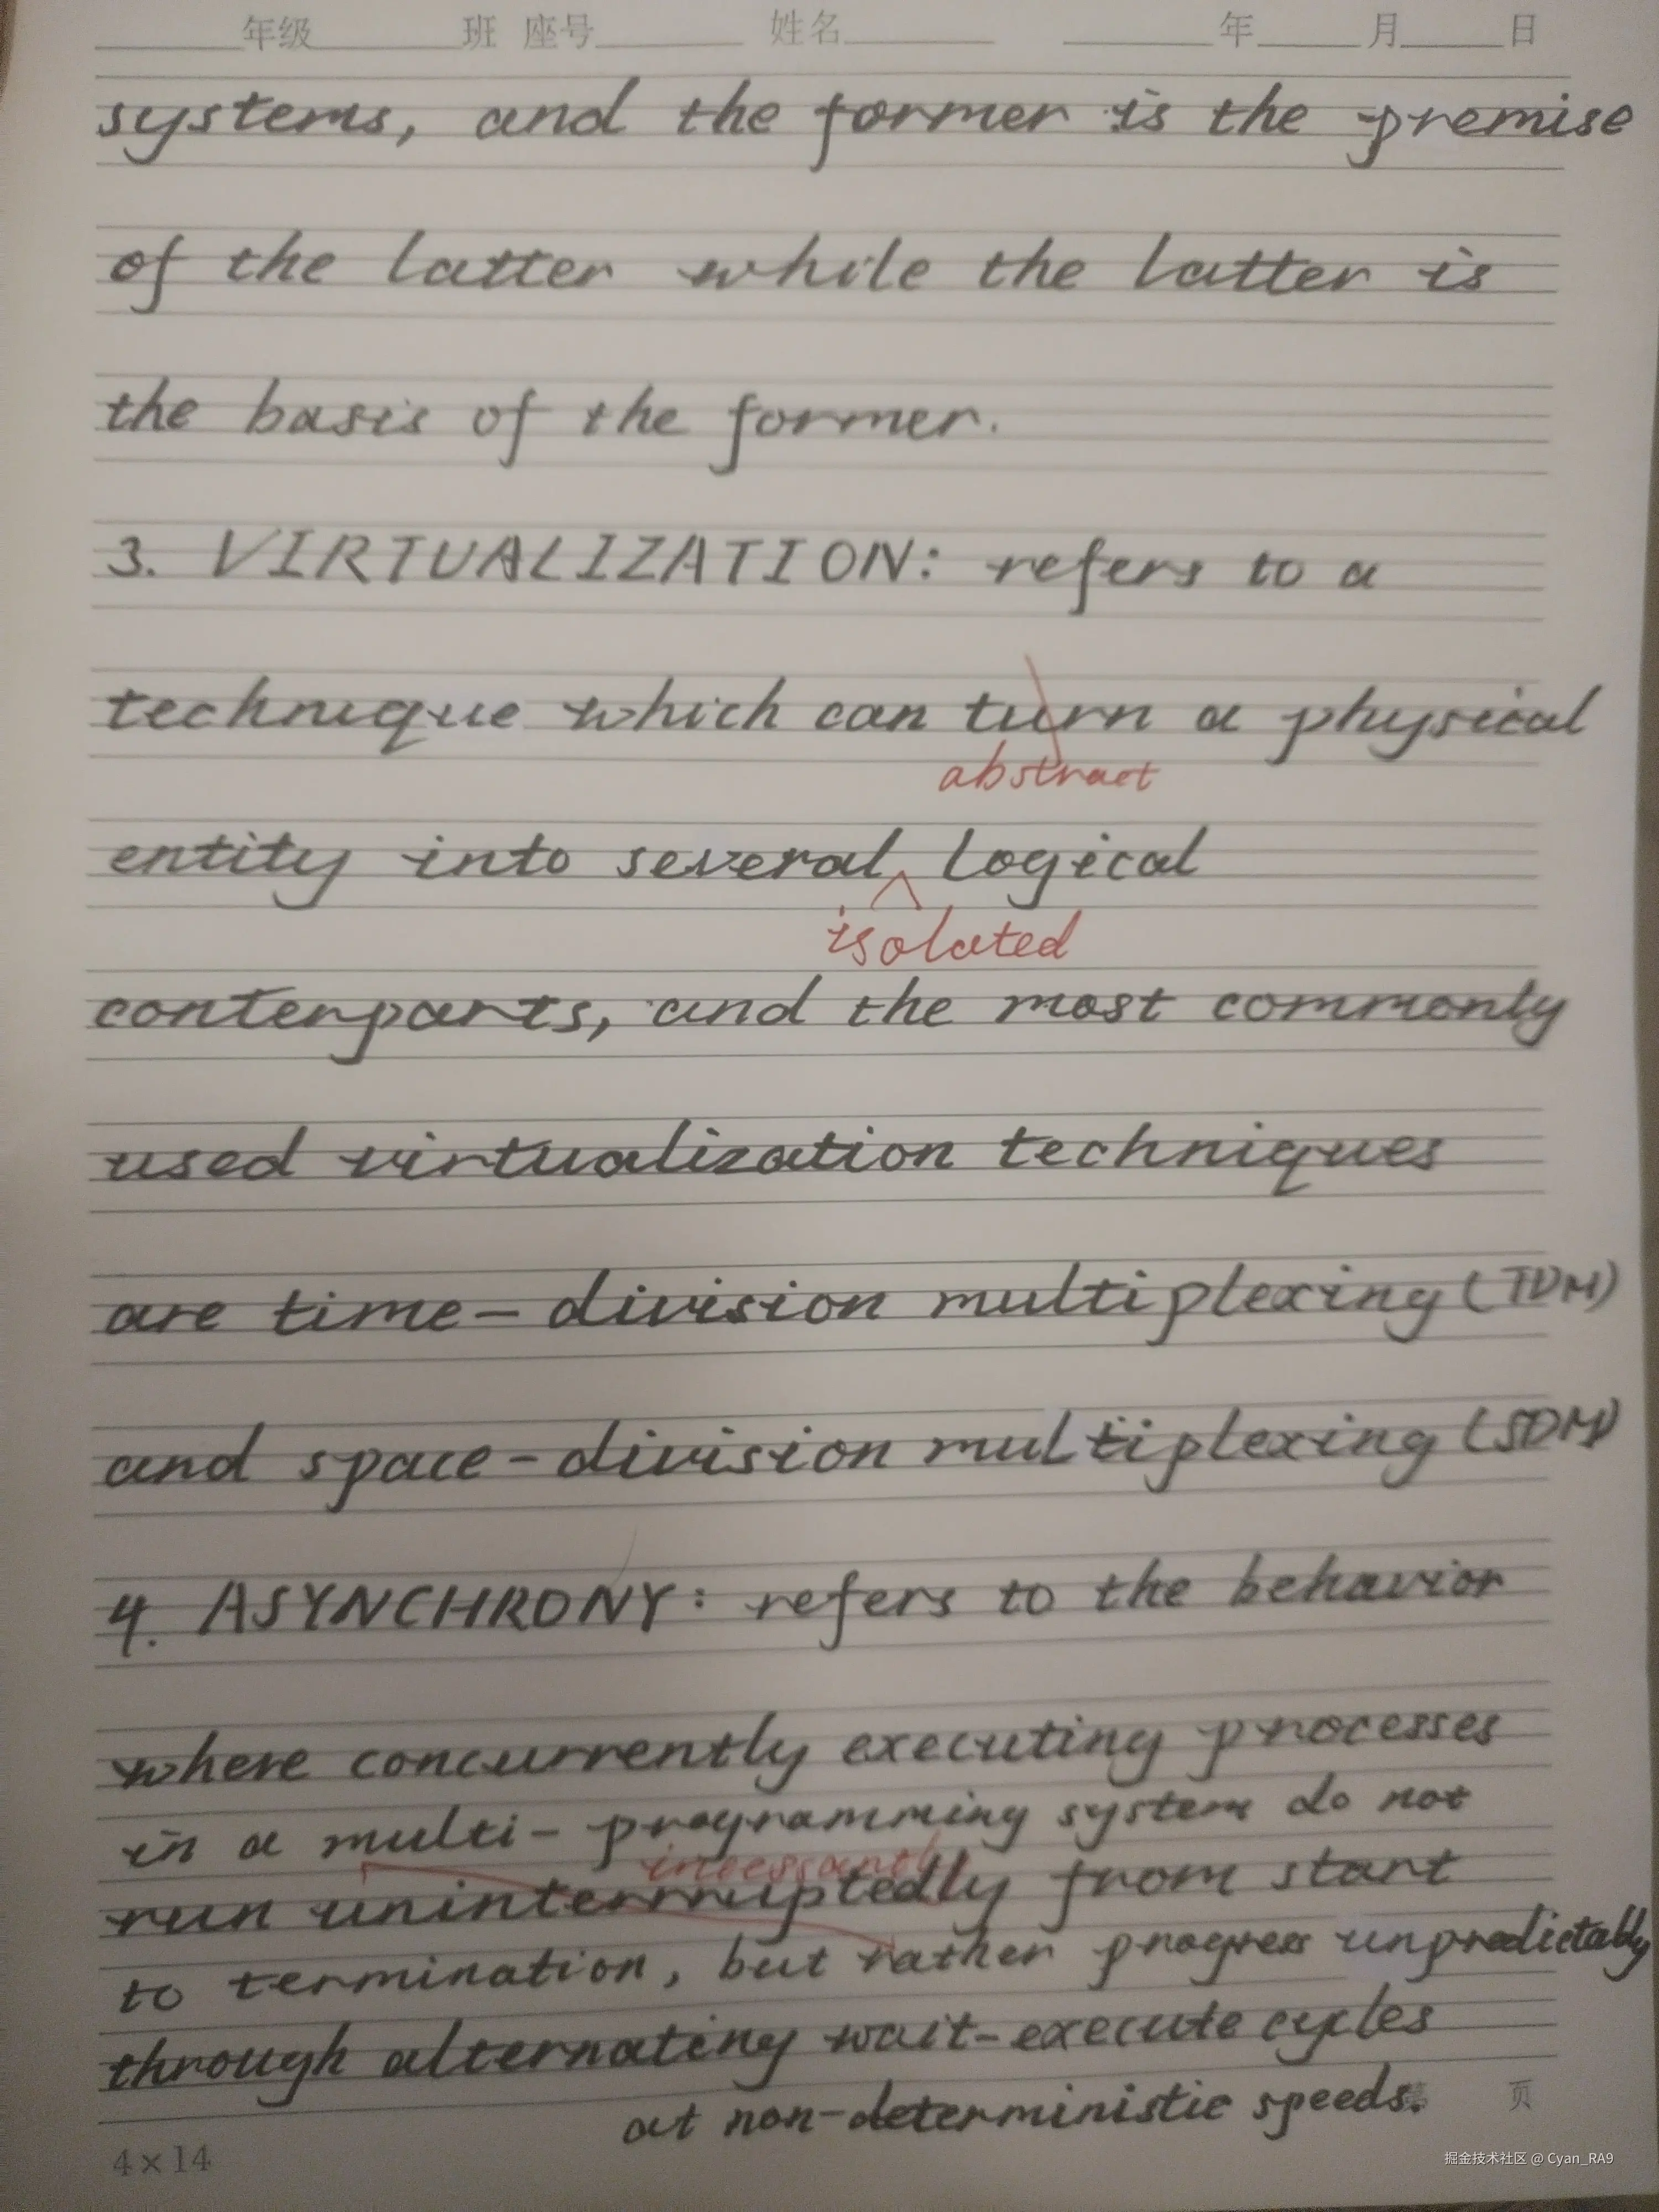 年级 班 座号 姓名 年 月 日
systems, and the former is the premise
of the latter while the latter is
the basis of the former.
3. VIRTUALIZATION: refers to a
technique which can turn a physical
abstract
entity into several logical
isolated
conterparts, and the most commonly
used virtualization techniques
are time-division multiplexing (TDM)
and space-division multiplexing (SDM)
4. ASYNCHRONY: refers to the behavior
where concurrently executing processes
in a multi-programming system do not
incessantly
run uninterruptedly from start
to termination, but rather progress unpredictably
through alternating wait-execute cycles
at non-deterministic speeds.
页
4×14
掘金技术社区 @ Cyan_RA9